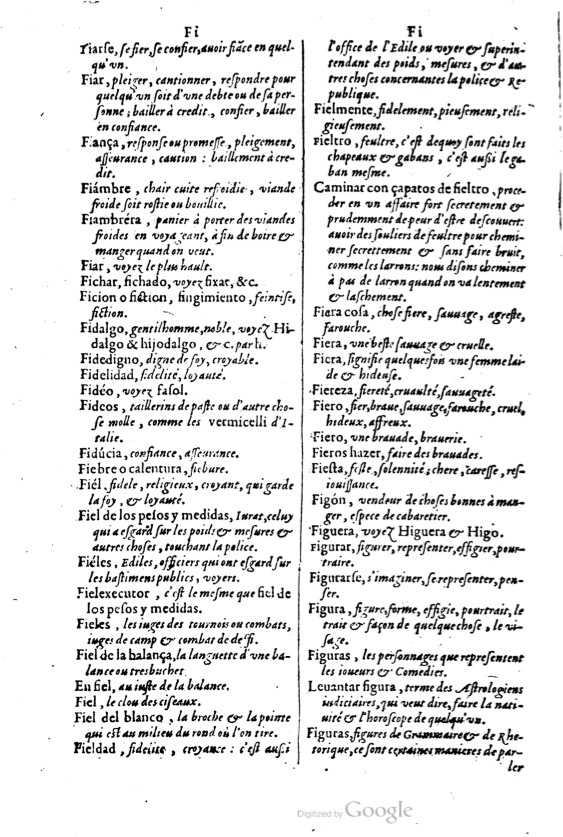 Fi
Fiarse, se fier, se confier, auoir fiãce en quel-
qu'vn.
Fiar, pleiger, cantionner, respondre pour
quelqu'vn soit d'vne debte ou de sa per-
sonne; bailler à credit, confier, bailler
en confiance.
Fiança, response ou promesse, pleigement,
asseurance, caution: baillement à cre-
dit.
Fiámbre, chair cuite refroidie, viande
froide soit rostie ou bouillie.
Fiambréra, panier à porter des viandes
froides en voyageant, à fin de boire &
manger quand on veut.
Fiar, voyez le plus hault.
Fichar, fichado, voyez fixar, &c.
Ficion o fiction, fingimiento, feintise,
fiction.
Fidalgo, gentilhomme, noble, voyez Hi-
dalgo & hijodalgo, & c. par h.
Fidedigno, digne de foy, croyable.
Fidelidad, fidelité, loyauté.
Fidéo, voyez fasol.
Fideos, taillerins de paste ou d'autre cho-
se molle, comme les vermicelli d'I-
talie.
Fidúcia, confiance, asseurance.
Fiebre o calentura, fiebure.
Fiél, fidele, religieux, croyant, qui garde
la foy, & loyauté.
Fiel de los pesos y medidas, Iurat, celuy
qui a esgard sur les poids & mesures &
autres choses, touchant la police.
Fiéles, Ediles, officiers qui ont esgard sur
les bastimens publics, voyers.
Fielexecutor, c'est le mesme que fiel de
los pesos y medidas.
Fieles, les iuges des tournois ou combats,
iuges de camp & combat de deffi.
Fiel de la balança, la languette d'vne ba-
lance ou tresbuchet.
En fiel, au iuste de la balance.
Fiel, le clou des ciseaux.
Fiel del blanco, la broche & la pointe
qui est au milieu du rond où l'on tire.
Fieldad, fidelité, croyance: c'est aussi
Fi
l'office de l'Edile ou voyer & superin-
tendant des poids, mesures, & d'au-
tres choses concernantes la police & Re-
publique.
Fielmente, fidelement, pieusement, reli-
gieusement.
Fieltro, feultre, c'est dequoy sont faits les
chapeaux & gabans, c'est aussi le ga-
ban mesme.
Caminar con çapatos de fieltro, proce-
der en vn affaire fort secretement &
prudemment de peur d'estre descouuert:
auoir des souliers de feultre pour chemi-
ner secrettement & sans faire bruit,
comme les larrons: nous disons cheminer
à pas de larron quand on va lentement
& laschement.
Fiera cosa, chose fiere, sauuage, agreste,
farouche.
Fiera, vne beste sauuage & cruelle.
Fiera, signifie quelquesfois vne femme lai-
de & hideuse.
Fiereza, fiereté, cruaulté, sauuageté.
Fiero, fier, braue, sauuage, farouche, cruel,
hideux, affreux.
Fiero, vne brauade, brauerie.
Fieros hazer, faire des brauades.
Fiesta, feste, solennité; chere, caresse, res-
iouissance.
Figón, vendeur de choses bonnes à man-
ger, espece de cabaretier.
Figuera, voyez Higuera & Higo.
Figurar, figurer, representer, effigier, pour-
traire.
Figurarse, s'imaginer, se representer, pen-
ser.
Figura, figure, forme, effigie, pourtrait, le
trait & façon de quelque chose, le vi-
sage.
Figuras, les personnages que representent
les ioueurs & Comedies.
Leuantar figura, terme des Astrologiens
iudiciaires, qui veut dire, faire la nati-
uité & l'horoscope de quelqu'vn.
Figuras, figures de Grammaire & de Rhe-
torique, ce sont certaines manieres de par-
ler
Digitized by Google